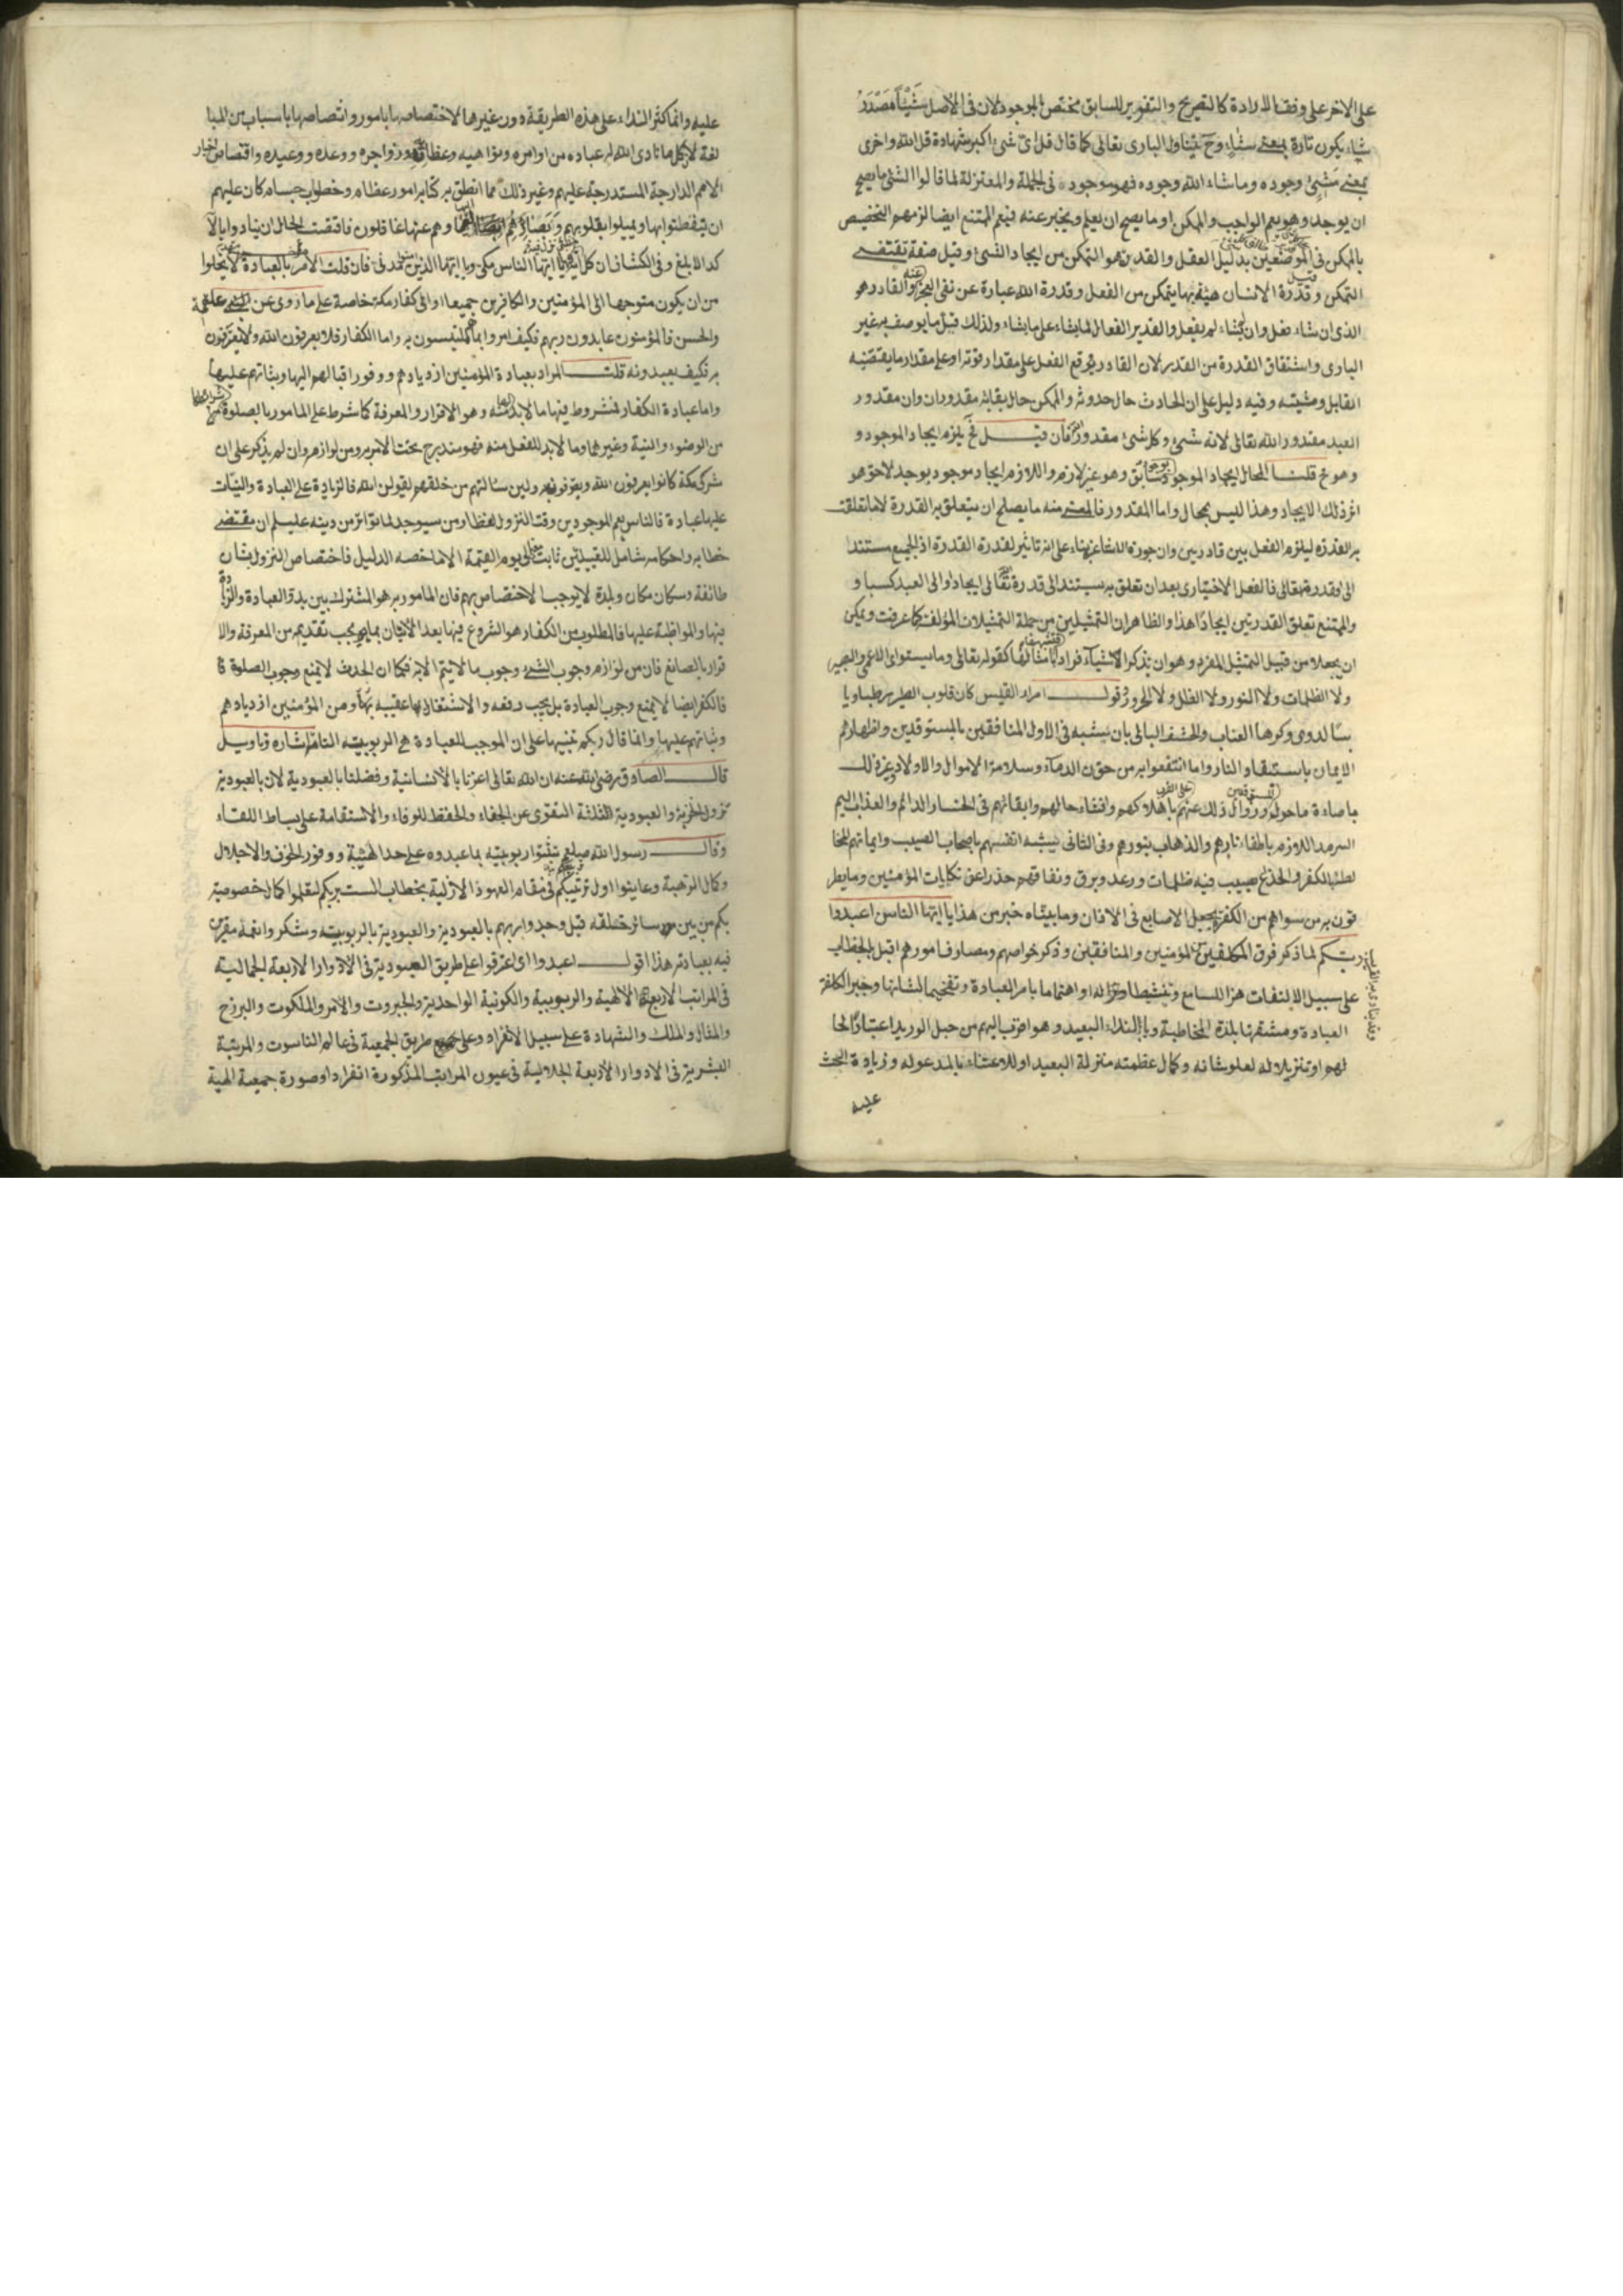 على الاخر على وفق الارادة كالتصريح والتقوير للسابق مختص بالموجود لان فى الاصل شَيْئًا مَصْدَرُ
شاء يكون تارة بمعنى شاءٍ وح يتناول البارى تعالى كما قال قل اىّ شئ اكبر شهادة قل الله واخرى
بمعنى مَشِئ وجوده وما شاء الله وجوده فهو موجود فى الجملة والمعتزلة لما قالوا الشئ ما يصح
ان يوجد وهو يعم الواجب والممكن او ما يصح ان يعلم ويخبر عنه فيعم الممتنع ايضا لزمهم التخصيص
بالممكن فى الموضعين بدليل العقل والقدرة هو التمكن من ايجاد الشئ وقيل صفة تقتضى
التمكن وقيل قدرة الانسان هيئة بها يتمكن من الفعل وقدرة الله عبارة عن نفى العجز عنه والقادر هو
الذى ان شاء فعل وان لم يشاء لم يفعل والقدير الفعال لما يشاء على ما يشاء ولذلك قلّ ما يوصف به غير
البارى واشتقاق القدرة من القدر لان القادر يوقع الفعل على مقدار قوته او على مقدار ما يقتضيه
القابل ومشيته وفيه دليل على ان الحادث حال حدوثه والممكن حال بقائه مقدوران وان مقدور
العبد مقدور الله تعالى لانه شئ وكل شئ مقدور الله فان قيل فح يلزم ايجاد الموجود و
وهو مح قلنا المحال ايجاد الموجود بوجود سابق وهو غير لازم واللازم ايجاد موجود بوجد لاحق هو
اثر ذلك الايجاد وهذا ليس بمحال واما المقدور فالمعنى منه ما يصلح ان يتعلق به القدرة لا ما تعلقت
به القدرة ليلزم الفعل بين قادرين وان جوزه الاشاعرة بناء على انه تاثير لقدرة القدرة اذ الجميع مستند
الى قدرته تعالى فالفعل الاختيارى بعد ان تعلق به يستند الى قدرة تعالى ايجادا والى العبد كسبا و
والممتنع تعلق القدرتين ايجادًا هذا والظاهر ان التمثيلين من جملة التمثيلات المؤلفة كما عرفت ويمكن
ان يجعلا من قبيل التمثيل المفرد وهو ان يذكر الاشياء فرادى فتشبهها بامثالها كقوله تعالى وما يستوى الاعمى والبصير
ولا الظلمات ولا النور ولا الظل ولا الحرور وقول امرء القيس كان قلوب الطير رطبا ويا
بسًا لدى وكرها العناب والحشف البالى بان يشبه فى الاول المنافقين بالمستوقدين واظهارهم
الايمان باستيقاد النار واما انتفعوا به من حقن الدماء وسلامة الاموال والاولاد وغير ذلك
باضاءة ما حوله وزوال ذلك عنهم على القرب باهلاكهم وافشاء حالهم وابقائهم فى الخسار الدائم والعذاب اليم
السرمد اللازم باطفاء نارهم والذهاب بنورهم وفى الثانى يشبه انفسهم باصحاب الصيب وايمانهم المخا
لط بالكفر والخدع بصيب فيه ظلمات ورعد وبرق ونفاقهم حذرا عن نكايات المؤمنين وما يطر
قون به من سواهم من الكفرة بجعل الاصابع فى الاذان وما بيناه خير من هذا يا ايّها الناس اعبدوا
ربّكم لما ذكر فرق المكلفين من المؤمنين والمنافقين وذكر خواصهم ومصارف امورهم اقبل بالخطاب
على سبيل الالتفات هزا للسامع وتنشيطا له او اهتماما بامر العبادة وتفخيما لشانها وجبرا لكلفة
العبادة ومشقتها بلذة المخاطبة ويا لنداء البعيد وهو اقرب اليهم من حبل الوريد اعتبارًا لحا
لهم او تنزيلا له لعلو شانه وكمال عظمته منزلة البعيد او للاعتناء بالمدعو له وزيادة الحث
عليه
عليه وانما كثر النداء على هذه الطريقة دون غيرها لاختصاصها بامور واتصاصها باسباب من المبا
لغة لان كل ما نادى الله له عباده من اوامره ونواهيه وعظاته وزواجره ووعده ووعيده واقتصاص اخبار
الامم الدارجة المستدرجة عليهم وغير ذلك مما انطق به كتابه امور عظام وخطوب جسام كان عليهم
ان يتفطنوا بها ويميلوا بقلوبهم وبصائرهم اليها وهم عنها غافلون فاقتضت الحال ان ينادوا بالآ
كد الابلغ وفى الكشاف ان كل يا ايّها الناس مكى ويا ايّها الذين مدنى فان قلت الامر بالعبادة لا يخلوا
من ان يكون متوجها الى المؤمنين والكافرين جميعا او الى كفار مكة خاصة على ما روى عن علقمة
والحسن فالمؤمنون عابدون ربهم فكيف امروا بما هم ملتبسون به واما الكفار فلا يعرفون الله ولا يقرّون
به فكيف يعبدونه قلت المراد بعبادة المؤمنين ازديادهم ووفور اقبالهم اليها وثباتهم عليها
واما عبادة الكفار فمشروط فيها ما لابد لها منه وهو الاقرار والمعرفة كما شرط على المامور بالصلوة
من الوضوء والنية وغيرهما وما لابد للفعل منه فهو مندرج تحت الامر به ومن لوازمه وان لم يذكر على ان
مشركى مكة كانوا يعرفون الله ويعترفونه ولئن سئالتهم من خلقهم ليقولن الله فالزيادة على العبادة والثبات
عليها عبادة فالناس يعم الموجودين وقت النزول لفظا ومن سيوجد لما تواتر من دينه عليه السلم ان مقتضى
خطابه واحكامه شامل للقبيلتين ثابت الى يوم القيمة الا ما خصه الدليل فاختصاص النزول بشان
طائفة وسكان مكان وبلدة لا يوجب الاختصاص بهم فان المامور به هو المشترك بين بدؤ العبادة والزيادة
فيها والمواظبة عليها فالمطلوب من الكفار هو الشروع فيها بعد الاتيان بما يجب تقديمه من المعرفة والا
قرار بالصانع فان من لوازم وجوب الشئ وجوب ما لا يتم الا به فكما ان الحدث لا يمنع وجوب الصلوة فا
فالكفر ايضا لا يمنع وجوب العبادة بل يجب رفعه والاشتغال بها عقيبه ومن المؤمنين ازديادهم
وثباتهم عليها وانما قال ربكم تنبيها على ان الموجب للعبادة هى الربوبيّة التامّة اشاره وتاويل
قال الصادق رضى الله عنه ان الله تعالى اعزنا بالانسانية وفضلنا بالعبودية لان بالعبودية
تزول الحرية والعبودية الثلثة التقوى عن الجفاء والحفظ للوفاء والاستقامة على بساط اللقاء
وقال رسول الله صلعم تيقنوا ربوبيّته بما عبدوه على حدا لهيبة ووفور الخوف والاجلال
وكمال الرهبة وعاينوا اول تربيتكم فى مقام العهود الازلية بخطاب الست بربكم لتعلموا كمال خصوصية
بكم من بين سائر خلقه قبل وجد واربهم بالعبودية والعبودية بالربوبيّة وشكروا نعمه مقرين
فيه بعبادته هذا اقول اعبدوا اى اعرفوا على طريق العبودية فى الادوار الاربعة الجمالية
فى المراتب الاربعة الالهية والربوبية والكونية الواحدية والجبروت والامر والملكوت والبرزخ
والمثال والملك والشهادة على سبيل الانفراد وعلى طريق الجمعية فى عالم الناسوت والمرتبة
البشرية فى الادوار الاربعة الجلالية فى عيون المراتب المذكورة انفرادا وصورة جمعية الهية